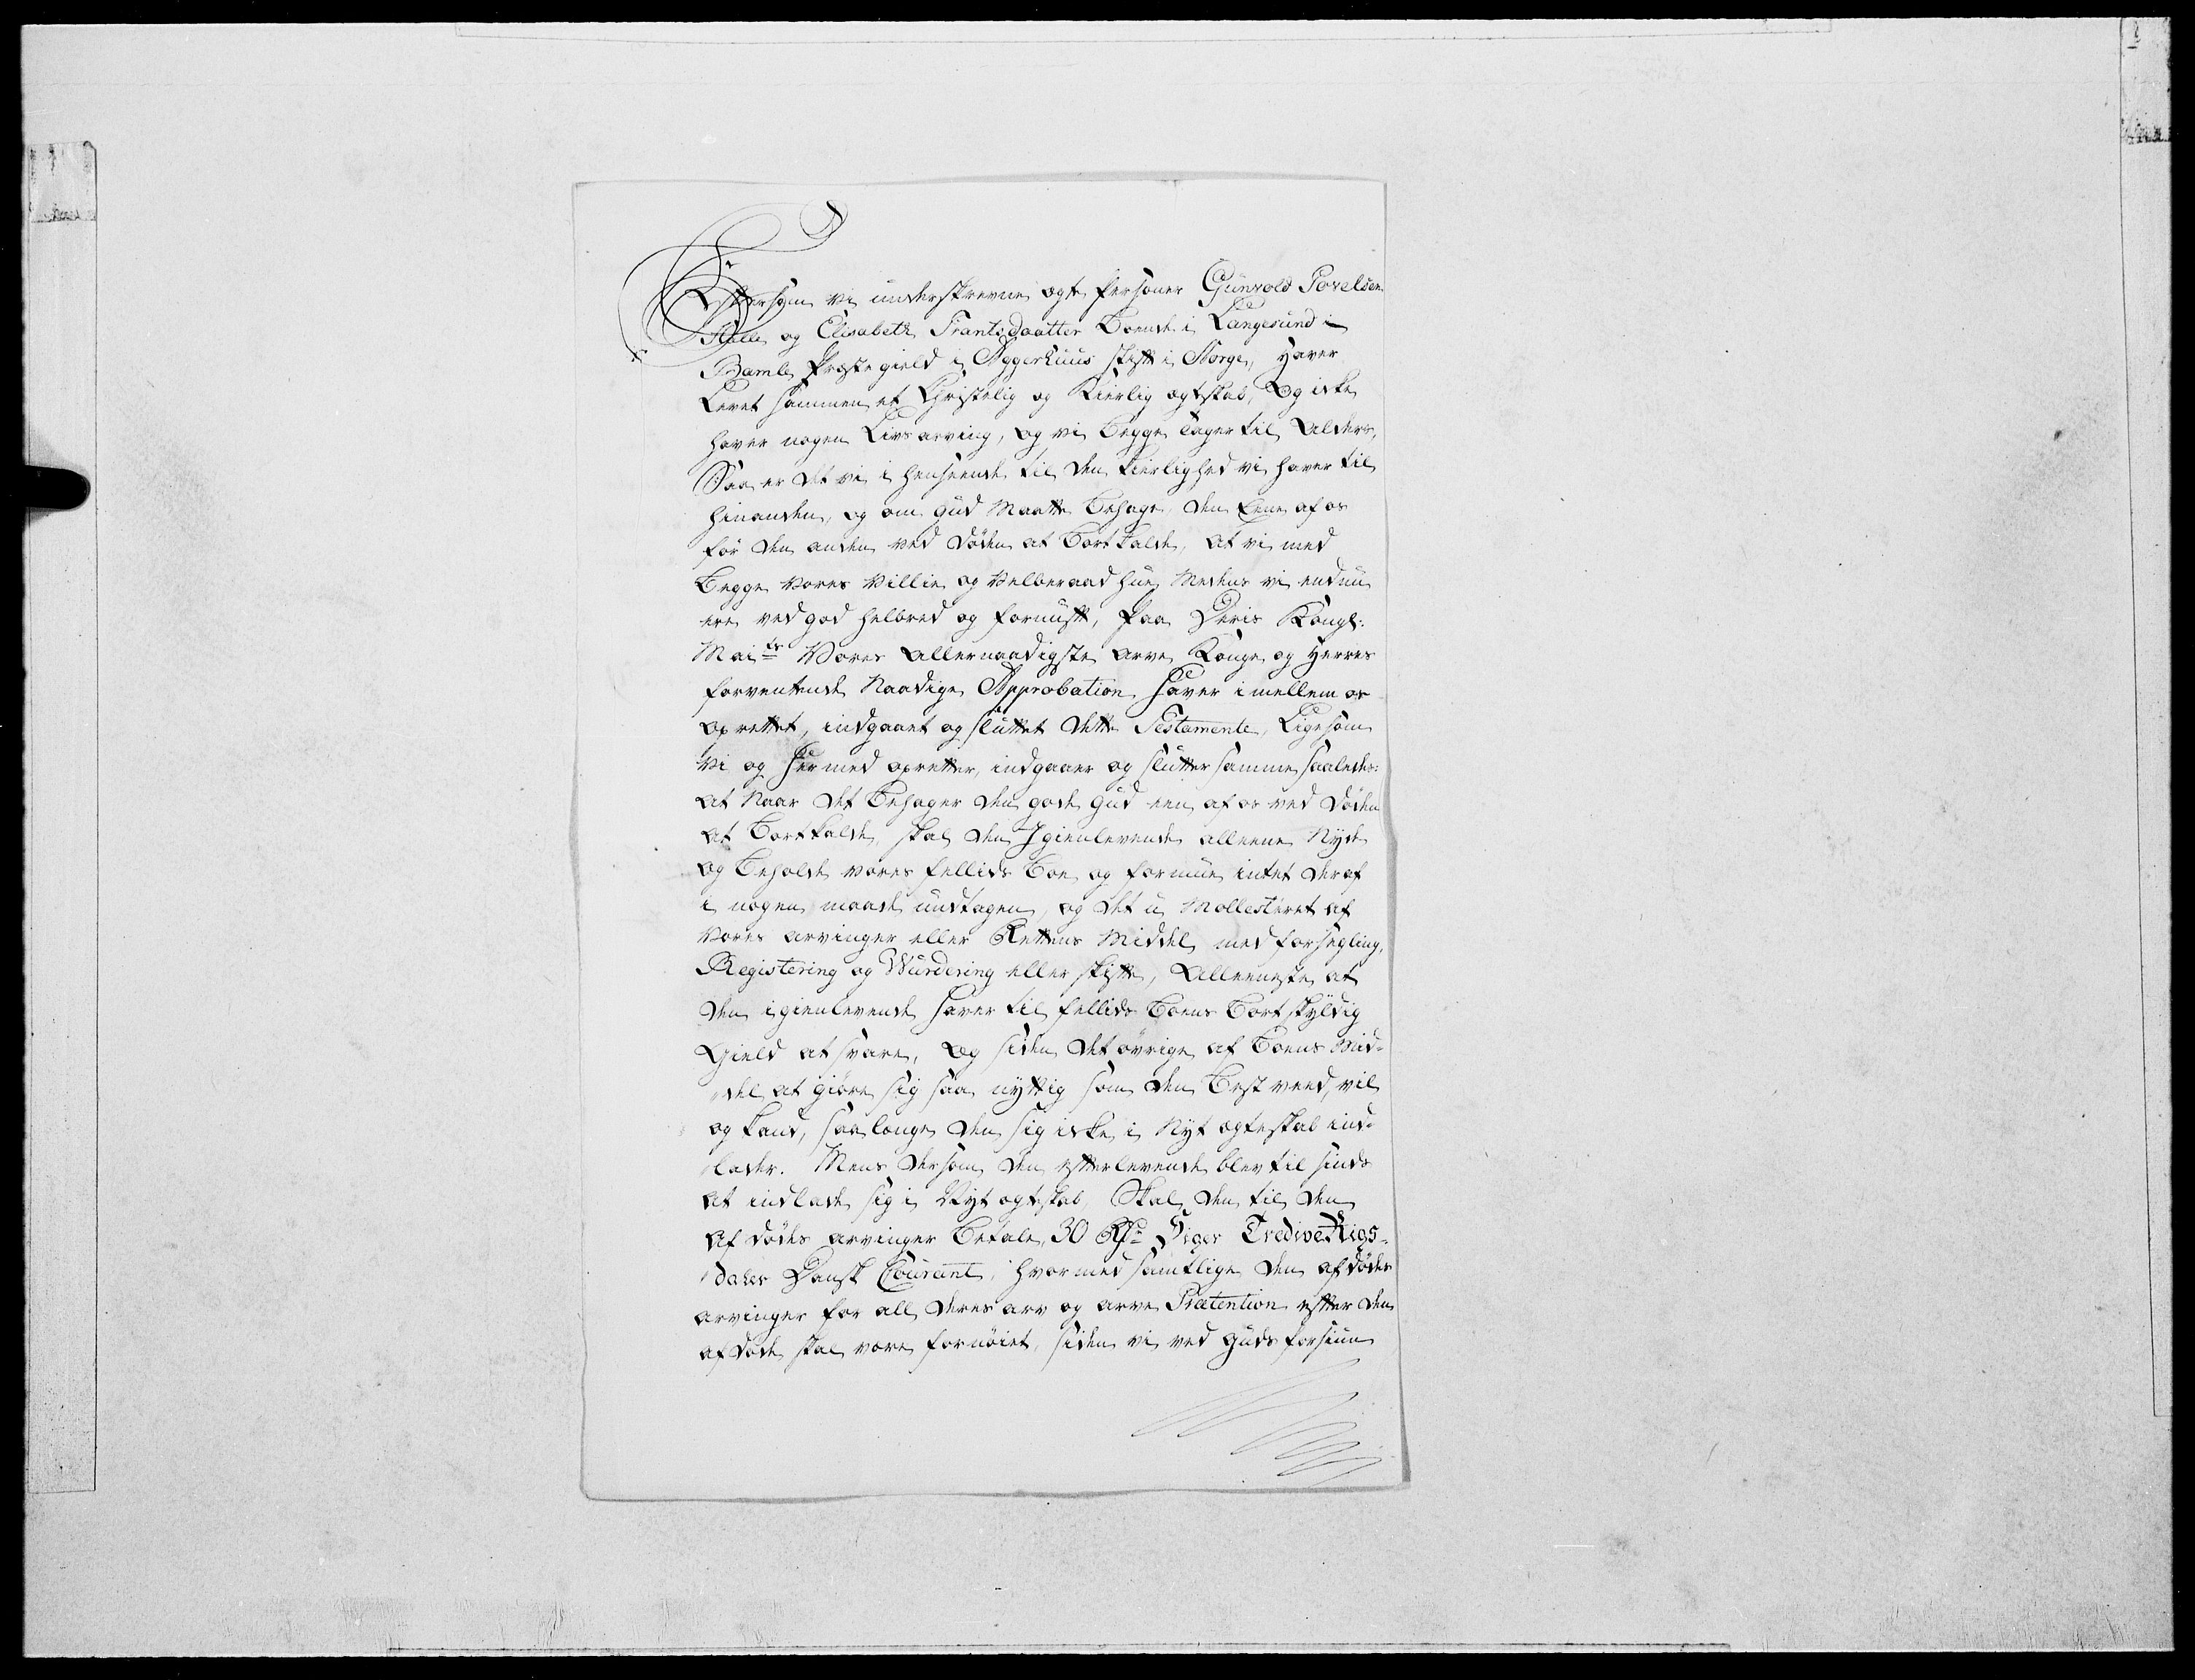 Eftersom vi underskrevne ægte Personer Gunvold Povelsen
Helle og Elisabeth Frantsdaatter boende i Langesund i
Bamble Præstegield i Aggerhuus stift i Norge, haver
levet sammen et Christelig og Kierlig ægteskab, Og icke
haver nogen Livsarving, og vi begge tager til Alders,
Saa er det vi i henseende til den kierlighed vi haver til
hinanden, og om Gud Maatte behage, den Eene af os
før den anden ved døden at bortkalde, at vi med
begge vores Villie og Velberaad hue, Medens vi endnu
ere ved god helbred og fornuft, paa Deris Kongl:
Maits Vores Allernaadigste Arve Konge og Herres
forventende Naadige Approbation haver imellem os
oprettet, indgaaet og sluttet dette Testamente, Ligesom
Vi og hermed opretter, indgaaer og slutter samme saaledes:
at Naar det behager den gode Gud een af os ved døden
at bortkalde, skal den Igienlevende alleene Nyde
og beholde vores fellids boe og formue intet deraf
i nogen maade undtagen, og det u Mollesteret af
Vores arvinger eller Rettens Middel med forsegling,
Registering og Wurdering eller skifte, Alleeneste at
den igienlevende haver til fellids boens bortskyldig
Gield at svare, Og siden det øvrige af boens Mid-
del at giøre sig saa nyttig som den best veed, vil
og kand, saalænge den sig icke i Nyt ægteskab ind-
lader. Mens dersom den efterlevende blev til sinds
at indlade sig i Nyt ægteskab, Skal den til den
afdødes arvinger betale 30 Rd Siger Tredive Rigs-
daler Dansk Courant, hvormed samtlige den afdødes
arvinger for all deres arv og arve Prætention efter den
afdøde skal være fornøiet, siden vi ved Guds forsiun